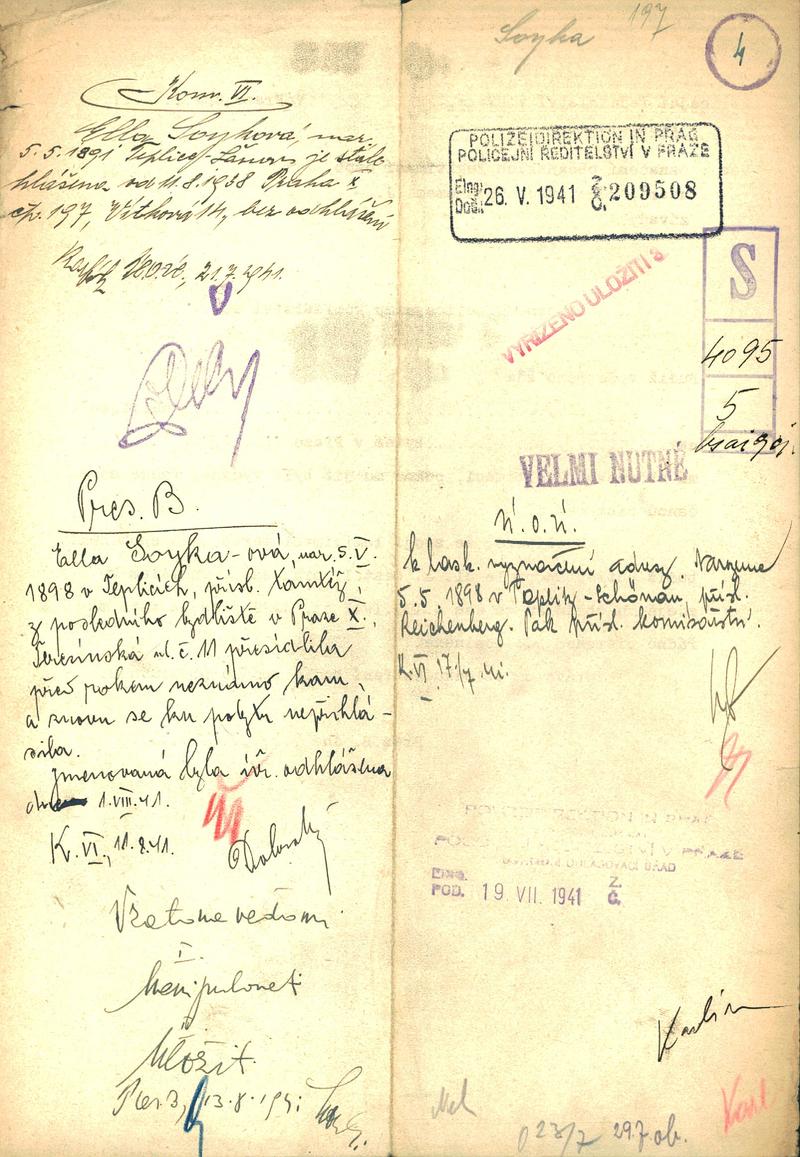 Kom. VI.
Ella Soyková, nar.
5.5.1891 Teplice-Šanov je stále
hlášena od 11.8.1938 Praha X
čp. 197, Vítkova 14, bez odhlášení
21.7.1941.
Pres. B.
Ella Soyka-ová, nar. 5.V.
1898 v Teplicích, přísl. tamtéž,
z posledního bydliště v Praze X.,
Terezínská ul. č. 11 přesídlila
před rokem neznámo kam,
a znovu se ku pobytu nepřihlá-
sila.
Jmenovaná byla odhlášena
dne 1.VIII.41.
K. VI, 11.8.41.
Vzato na vědomí
I.
Manipulaci
Uložit
Pres. B, 13.8.1941
Soyka 197
4
POLIZEIDIREKTION IN PRAG
POLICEJNÍ ŘEDITELSTVÍ V PRAZE
Eing. Došl. 26. V. 1941 Z. Č. 209508
S
4095
5
VYŘÍZENO ULOŽITI
VELMI NUTNÉ
Ú.o.ú.
k lask. vyznačení adresy. Narozena
5.5.1898 v Teplitz-Schönau, přísl.
Reichenberg. Pak přísl. komisařství.
K. VI 17/7 41.
POLIZEIDIREKTION IN PRAG
POLICEJNÍ ŘEDITELSTVÍ V PRAZE
OHLAŠOVACÍ ÚŘAD
EING. POD. 19. VII. 1941 Z. Č.
Karlín
23/7 29.7. ob.
Karl